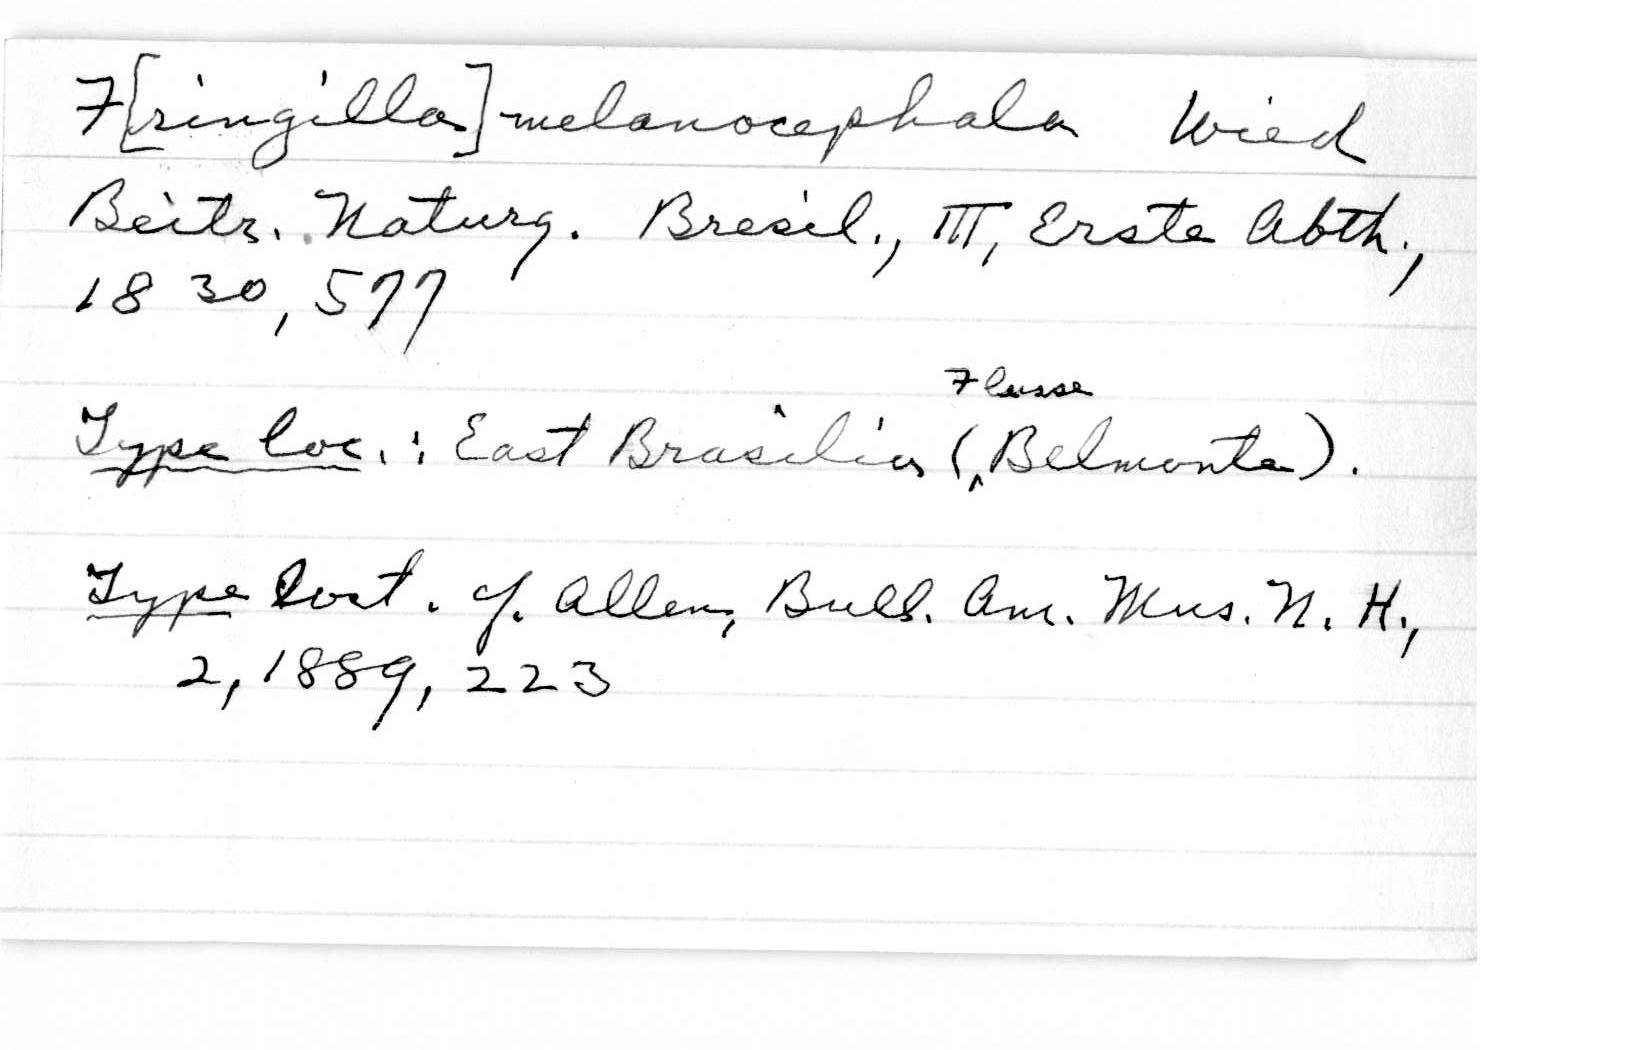 F[ringilla] melanocephala Wied
Beitr. Naturg. Bresil., III, Erste Abth.,
1830, 577
Type loc.: East Brasilia (Flusse Belmonte).
Type lost. cf. Allen, Bull. Am. Mus. N. H.,
2, 1889, 223